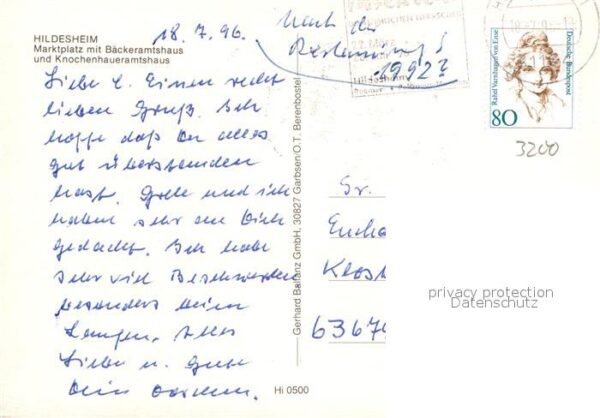 HILDESHEIM
Marktplatz mit Bäckeramtshaus
und Knochenhaueramtshaus
18.7.96.
Nach der
1992?
Liebe L. Einen recht
lieben Gruß. Ich
hoffe daß Du alles
gut überstanden
hast. und ich
haben sehr an Dich
gedacht. Ich habe
sehr viel Beschwerden
besonders beim
Laufen. Alles
Liebe u. Gute
Dein
Gerhard Ballanz GmbH, 30827 Garbsen/O.T. Berenbostel
Hi 0500
Rahel Varnhagen von Ense
Deutsche Bundespost
80
3200
Fr.
Klost
6367
privacy protection
Datenschutz